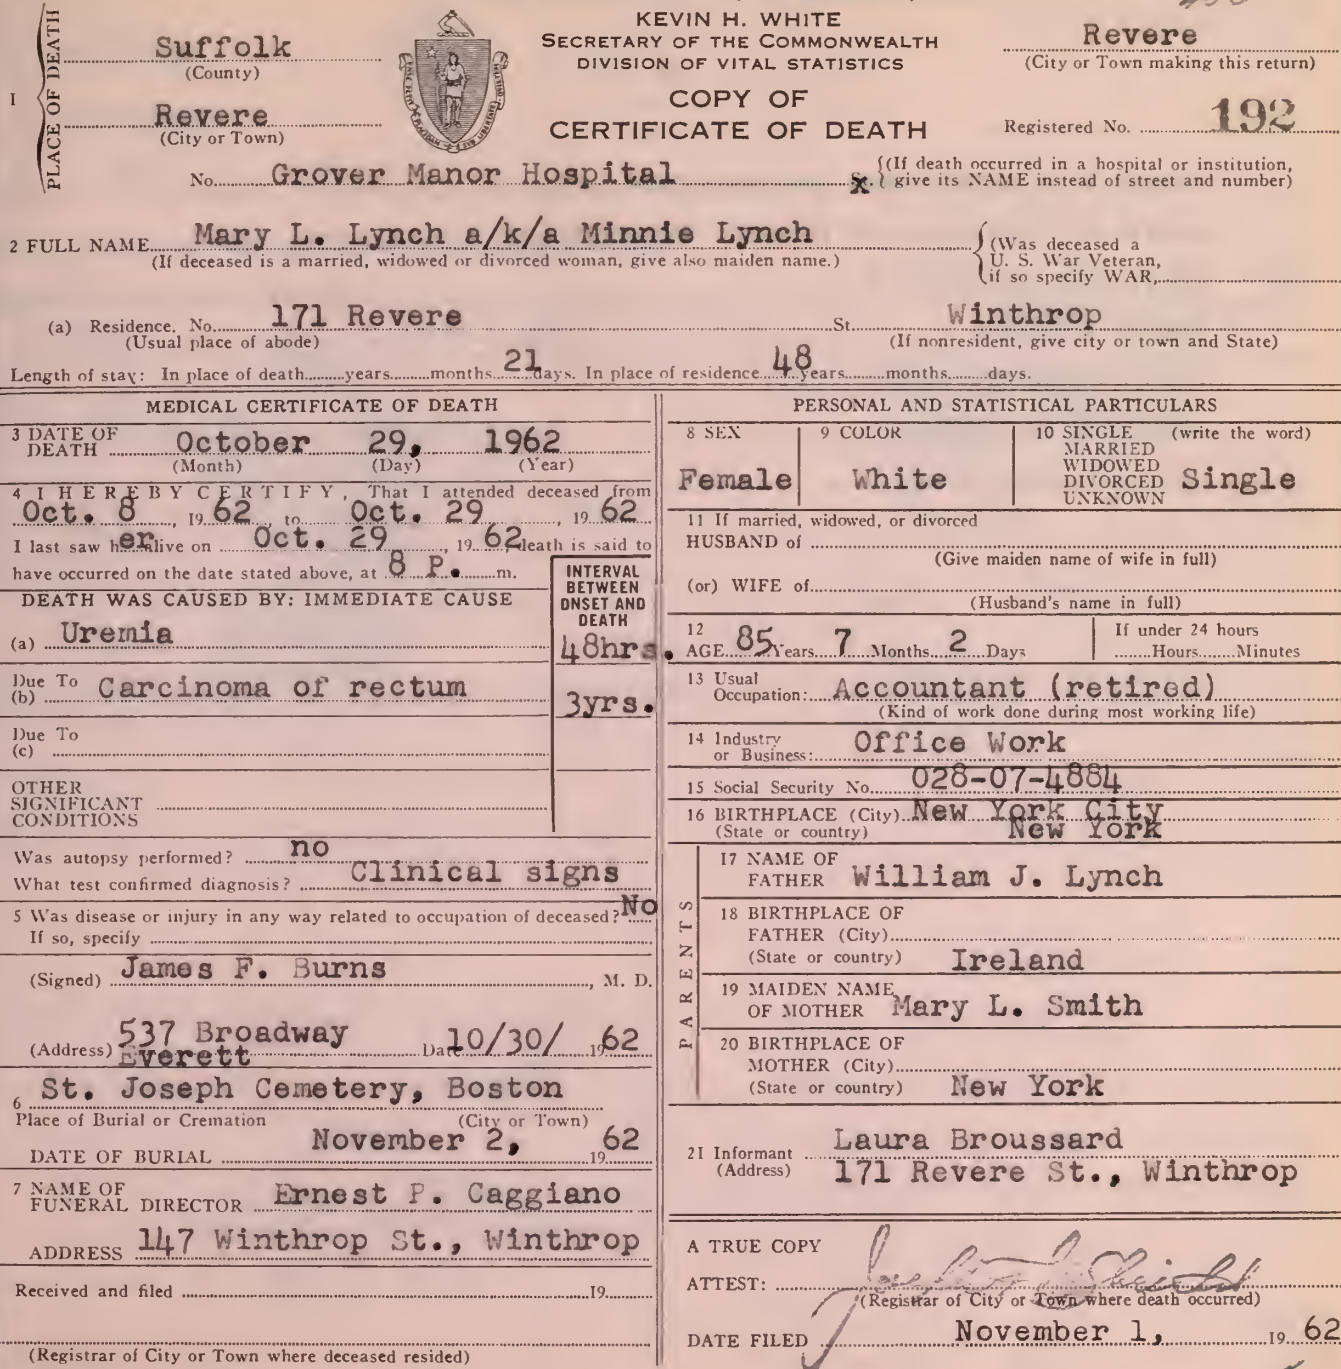 KEVIN H. WHITE
SECRETARY OF THE COMMONWEALTH
DIVISION OF VITAL STATISTICS
COPY OF
CERTIFICATE OF DEATH
1 PLACE OF DEATH
Suffolk
(County)
Revere
(City or Town)
Revere
(City or Town making this return)
Registered No. 192
No. Grover Manor Hospital St. {(If death occurred in a hospital or institution, give its NAME instead of street and number)
2 FULL NAME Mary L. Lynch a/k/a Minnie Lynch
(If deceased is a married, widowed or divorced woman, give also maiden name.)
{(Was deceased a
U. S. War Veteran,
if so specify WAR,
(a) Residence. No. 171 Revere St. Winthrop
(Usual place of abode) (If nonresident, give city or town and State)
Length of stay: In place of death years months 21 days. In place of residence 48 years months days.
MEDICAL CERTIFICATE OF DEATH
3 DATE OF DEATH October 29, 1962
(Month) (Day) (Year)
4 I HEREBY CERTIFY, That I attended deceased from
Oct. 8, 19 62, to Oct. 29, 19 62
I last saw her alive on Oct. 29, 19 62 death is said to
have occurred on the date stated above, at 8 P. m.
INTERVAL BETWEEN ONSET AND DEATH
DEATH WAS CAUSED BY: IMMEDIATE CAUSE
(a) Uremia 48hrs.
Due To
(b) Carcinoma of rectum 3yrs.
Due To
(c)
OTHER
SIGNIFICANT
CONDITIONS
Was autopsy performed? no
What test confirmed diagnosis? Clinical signs
5 Was disease or injury in any way related to occupation of deceased? No
If so, specify
(Signed) James F. Burns, M. D.
(Address) 537 Broadway
Everett Date 10/30/ 19 62
6 St. Joseph Cemetery, Boston
Place of Burial or Cremation (City or Town)
DATE OF BURIAL November 2, 19 62
7 NAME OF FUNERAL DIRECTOR Ernest P. Caggiano
ADDRESS 147 Winthrop St., Winthrop
Received and filed 19
(Registrar of City or Town where deceased resided)
PERSONAL AND STATISTICAL PARTICULARS
8 SEX 9 COLOR 10 SINGLE (write the word)
MARRIED
WIDOWED
DIVORCED
UNKNOWN
Female White Single
11 If married, widowed, or divorced
HUSBAND of
(Give maiden name of wife in full)
(or) WIFE of
(Husband's name in full)
12 AGE 85 Years 7 Months 2 Days
If under 24 hours
Hours Minutes
13 Usual Occupation: Accountant (retired)
(Kind of work done during most working life)
14 Industry or Business: Office Work
15 Social Security No. 028-07-4884
16 BIRTHPLACE (City) New York City
(State or country) New York
PARENTS
17 NAME OF FATHER William J. Lynch
18 BIRTHPLACE OF
FATHER (City)
(State or country) Ireland
19 MAIDEN NAME OF MOTHER Mary L. Smith
20 BIRTHPLACE OF
MOTHER (City)
(State or country) New York
21 Informant Laura Broussard
(Address) 171 Revere St., Winthrop
A TRUE COPY
ATTEST:
(Registrar of City or Town where death occurred)
DATE FILED November 1, 19 62